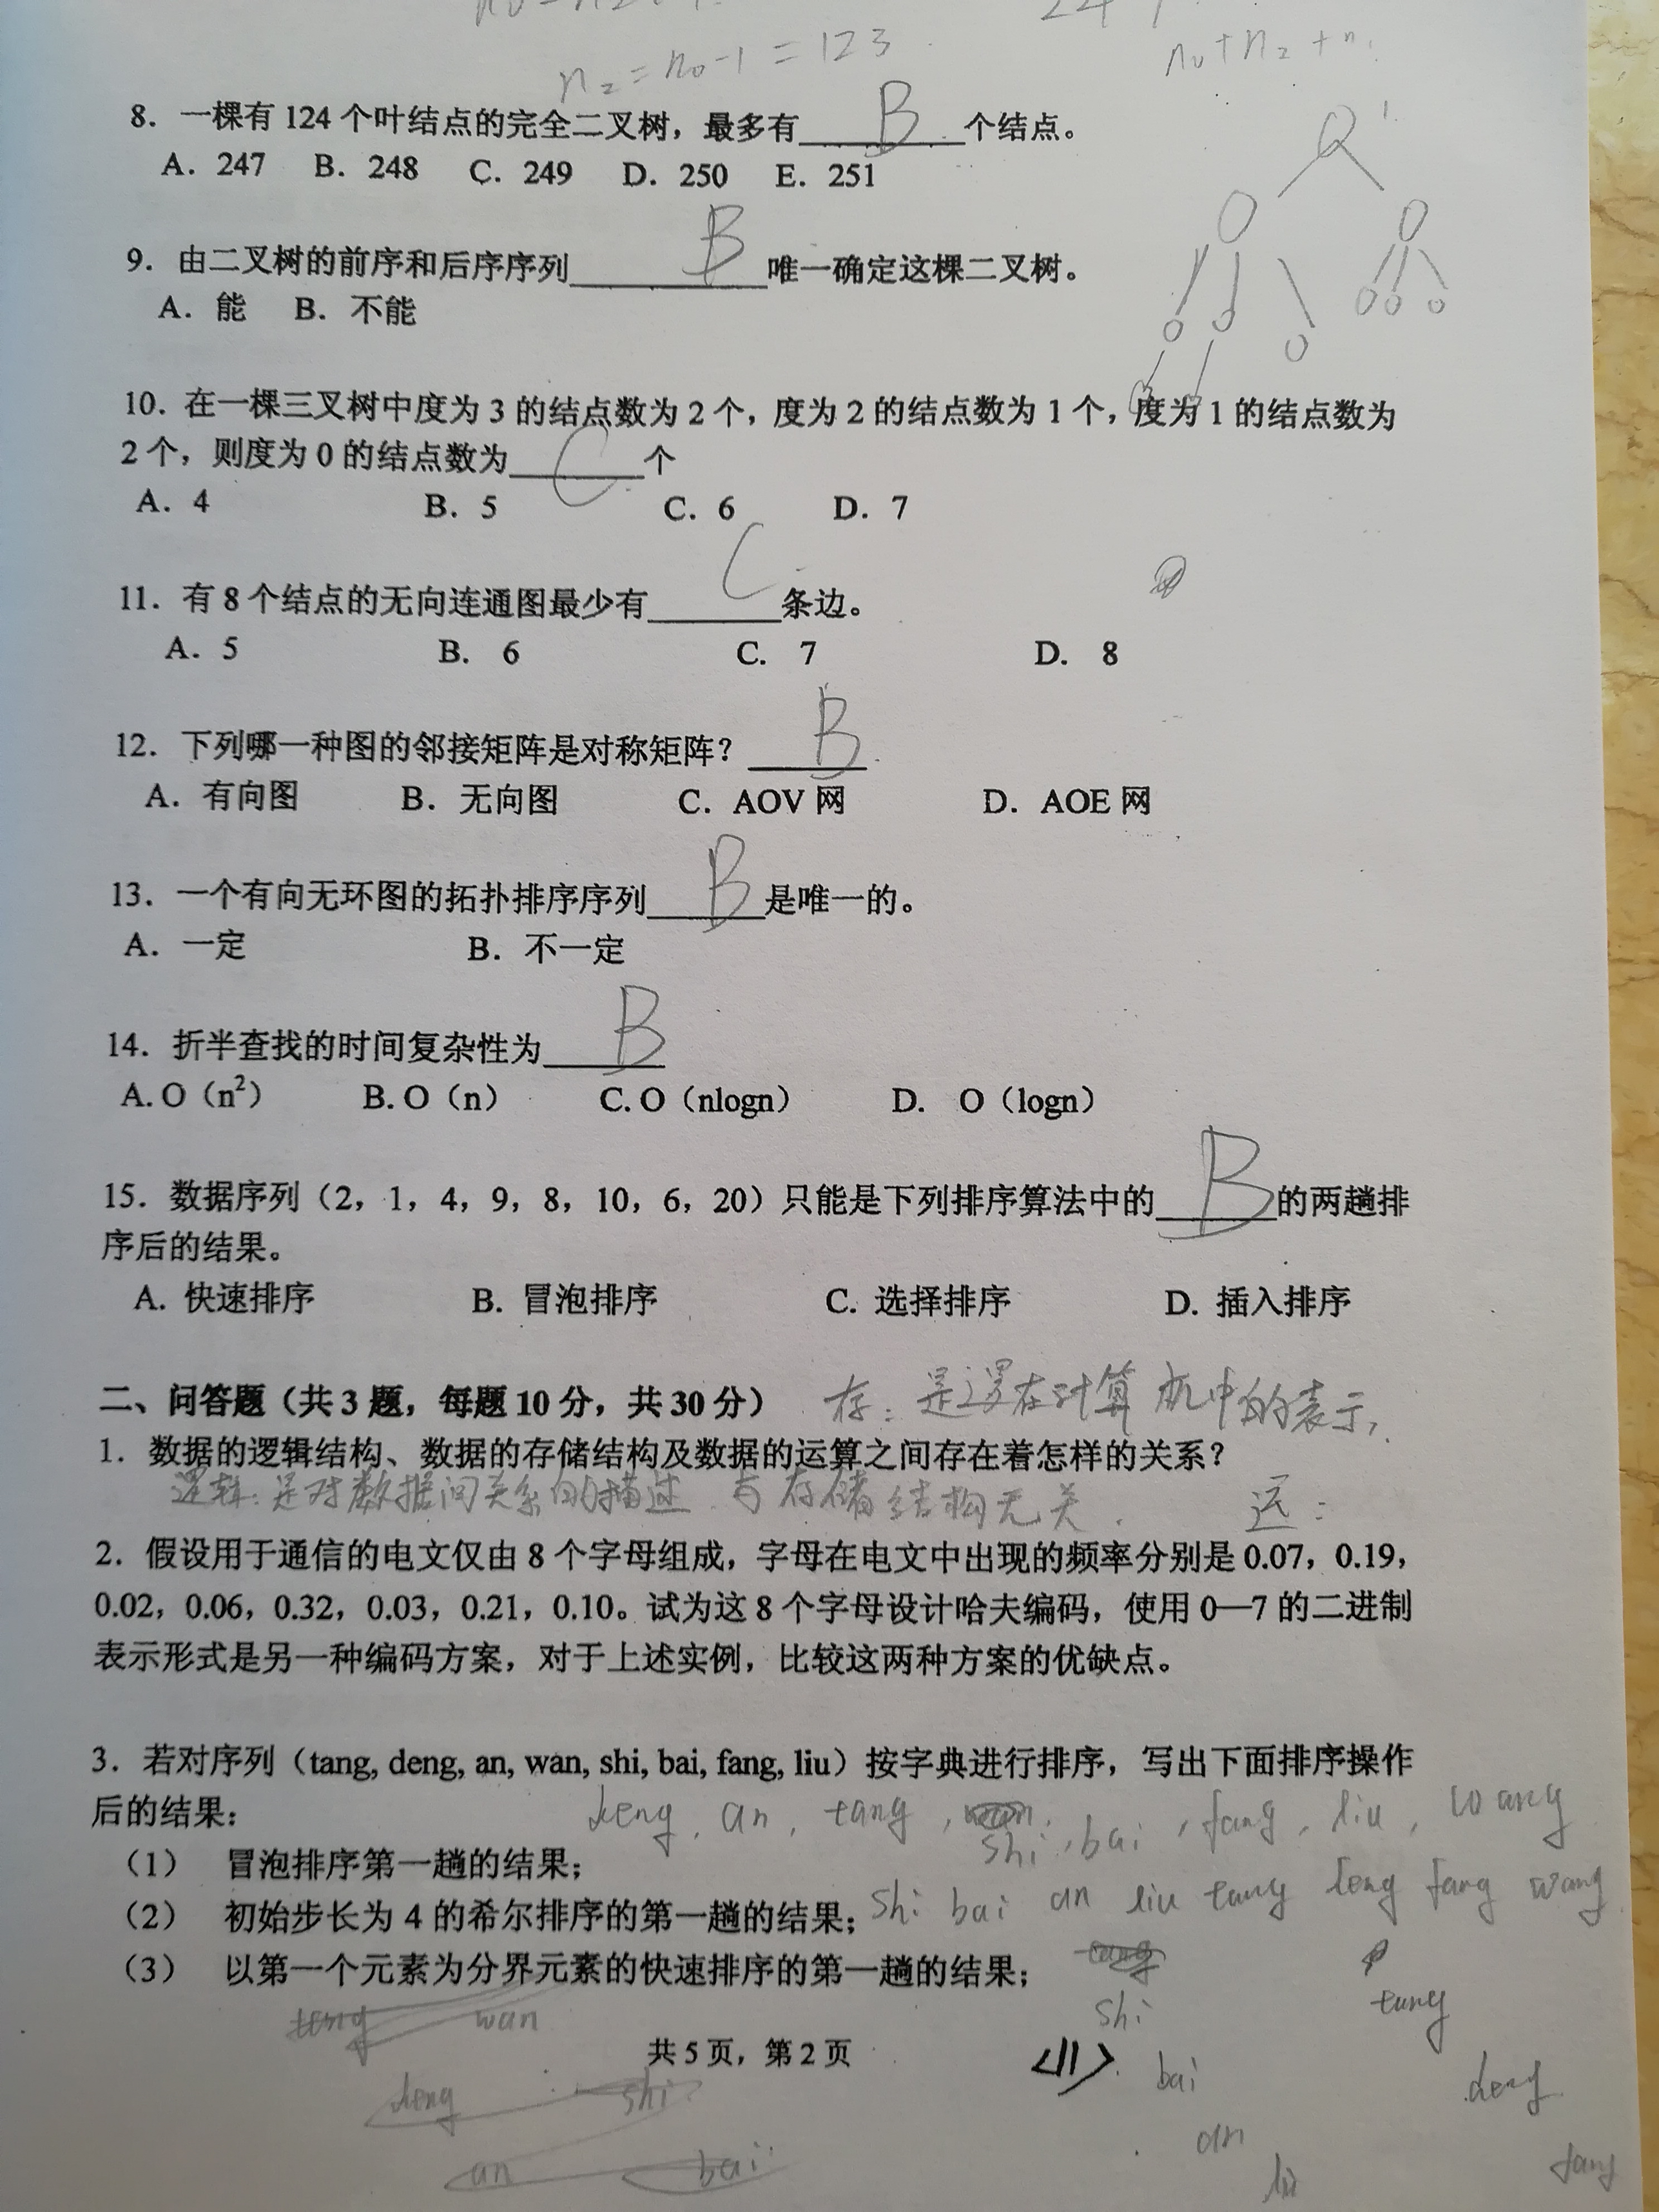 n₂ = n₀-1 = 123
n₀+n₂+n₁
8. 一棵有 124 个叶结点的完全二叉树，最多有 B 个结点。
A. 247 B. 248 C. 249 D. 250 E. 251
9. 由二叉树的前序和后序序列 B 唯一确定这棵二叉树。
A. 能 B. 不能
10. 在一棵三叉树中度为 3 的结点数为 2 个，度为 2 的结点数为 1 个，度为 1 的结点数为
2 个，则度为 0 的结点数为 C 个
A. 4 B. 5 C. 6 D. 7
11. 有 8 个结点的无向连通图最少有 C 条边。
A. 5 B. 6 C. 7 D. 8
12. 下列哪一种图的邻接矩阵是对称矩阵？ B
A. 有向图 B. 无向图 C. AOV 网 D. AOE 网
13. 一个有向无环图的拓扑排序序列 B 是唯一的。
A. 一定 B. 不一定
14. 折半查找的时间复杂性为 B
A. O（n²） B. O（n） C. O（nlogn） D. O（logn）
15. 数据序列（2，1，4，9，8，10，6，20）只能是下列排序算法中的 B 的两趟排
序后的结果。
A. 快速排序 B. 冒泡排序 C. 选择排序 D. 插入排序
二、问答题（共 3 题，每题 10 分，共 30 分）
存：是逻在计算机中的表示，
1. 数据的逻辑结构、数据的存储结构及数据的运算之间存在着怎样的关系？
逻辑：是对数据间关系的描述 与存储结构无关.
2. 假设用于通信的电文仅由 8 个字母组成，字母在电文中出现的频率分别是 0.07，0.19，
0.02，0.06，0.32，0.03，0.21，0.10。试为这 8 个字母设计哈夫编码，使用 0—7 的二进制
表示形式是另一种编码方案，对于上述实例，比较这两种方案的优缺点。
3. 若对序列（tang, deng, an, wan, shi, bai, fang, liu）按字典进行排序，写出下面排序操作
后的结果：
deng, an, tang, shi, bai, fang, liu, wang
（1） 冒泡排序第一趟的结果；
（2） 初始步长为 4 的希尔排序的第一趟的结果；
shi bai an liu tang deng fang wang
（3） 以第一个元素为分界元素的快速排序的第一趟的结果；
shi tang
wan
共 5 页，第 2 页
bai deng
deng shi
an
an bai
liu fang